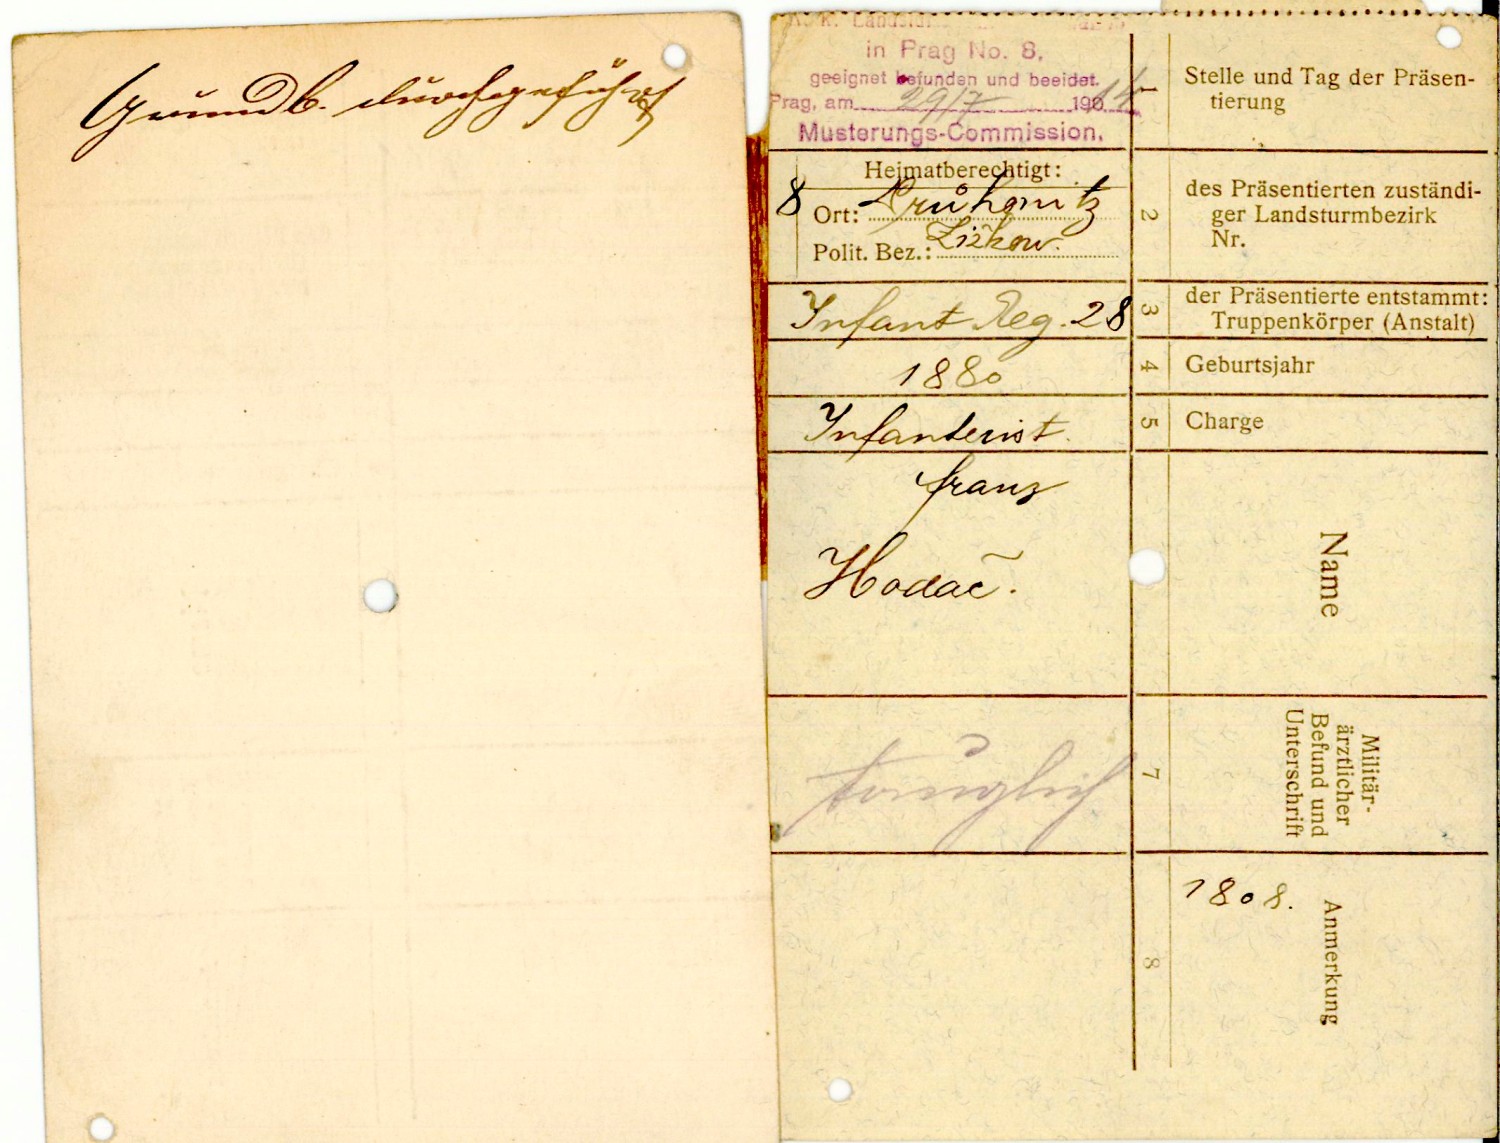 Grundb. durchgeführt
in Prag No. 8,
geeignet befunden und beeidet.
Prag, am 29/7 1914
Musterungs-Commission.
1
Stelle und Tag der Präsen-
tierung
Heimatberechtigt:
8
Ort: Průhonitz
Polit. Bez.: Žižkow.
2
des Präsentierten zuständi-
ger Landsturmbezirk
Nr.
Infant Reg. 28
3
der Präsentierte entstammt:
Truppenkörper (Anstalt)
1880
4
Geburtsjahr
Infanterist.
5
Charge
Franz
Hodač.
Name
tauglich
7
Militär-
ärztlicher
Befund und
Unterschrift
8
1808.
Anmerkung